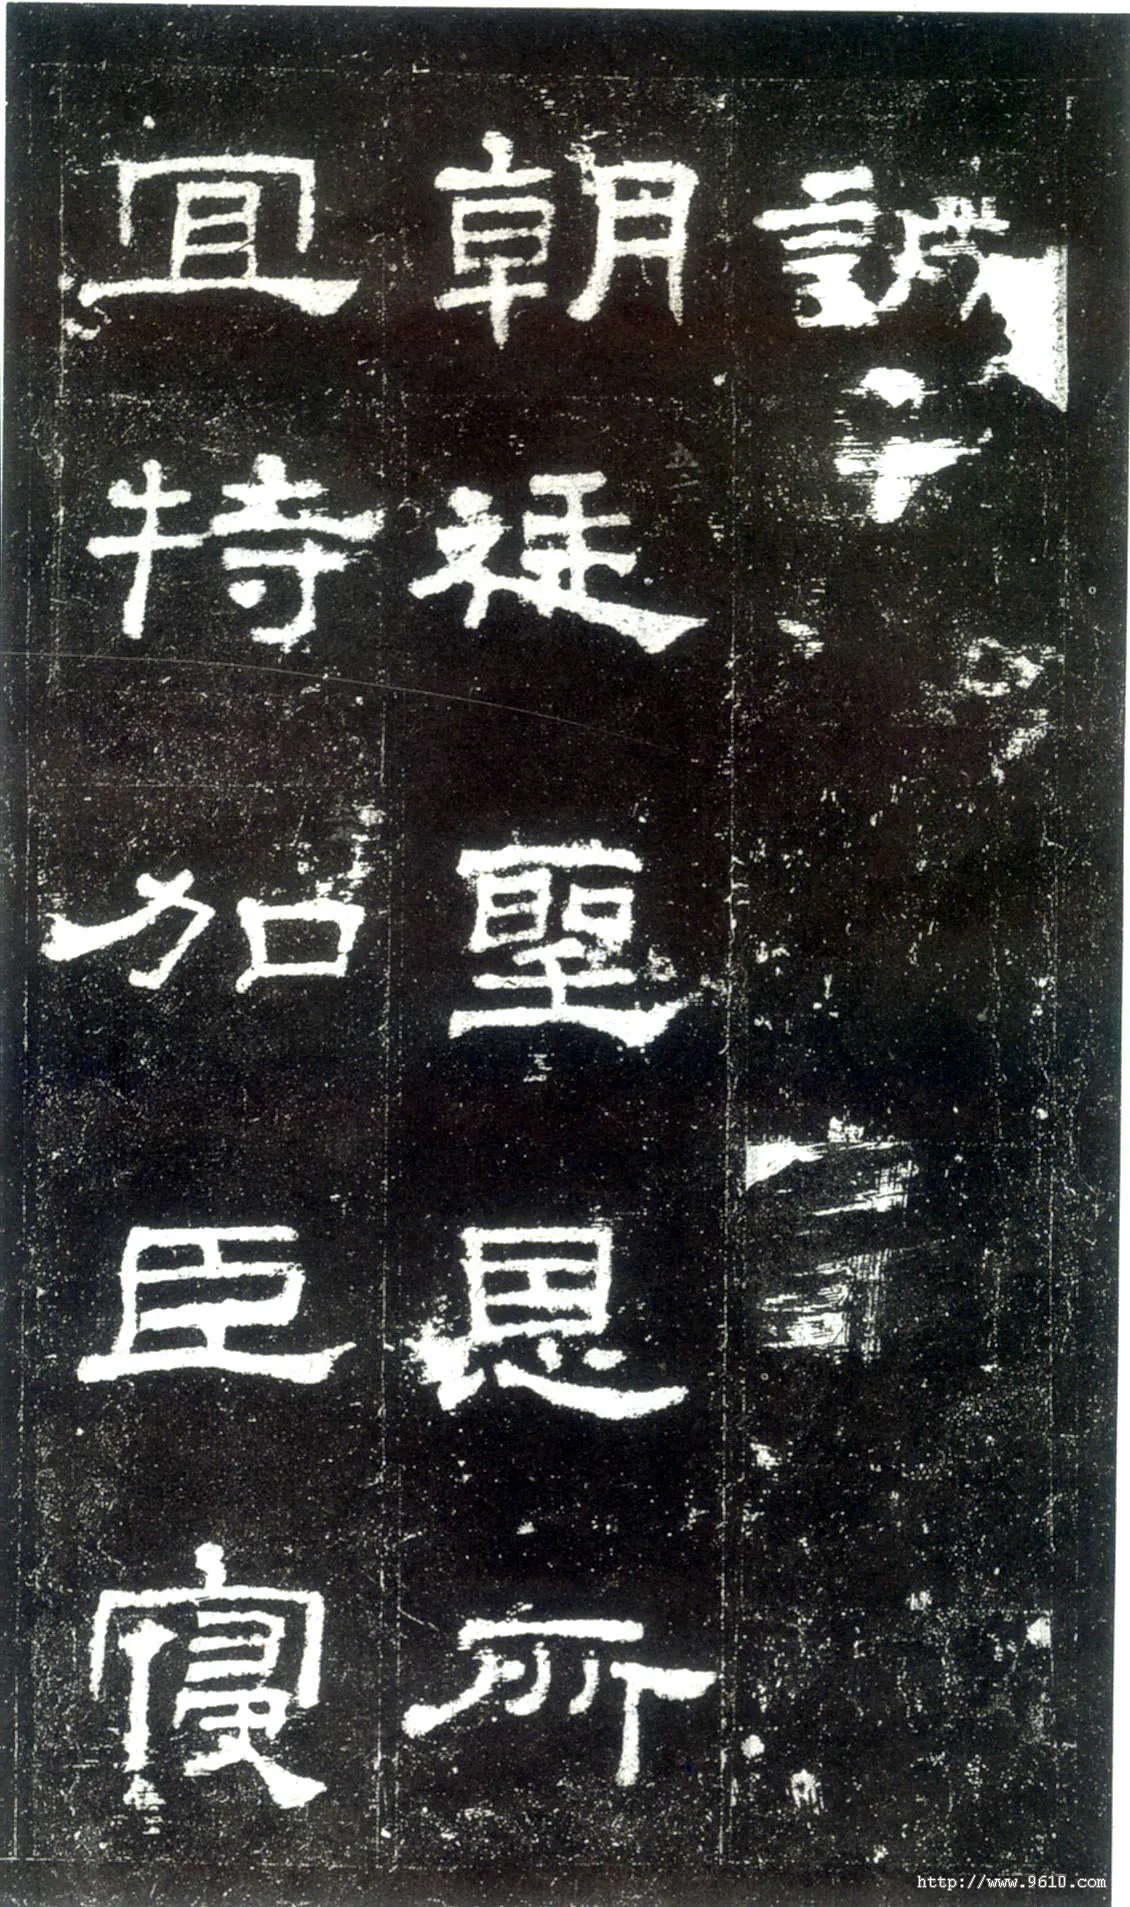 誠
朝廷聖恩所
宜特加臣寢
http://www.9610.com